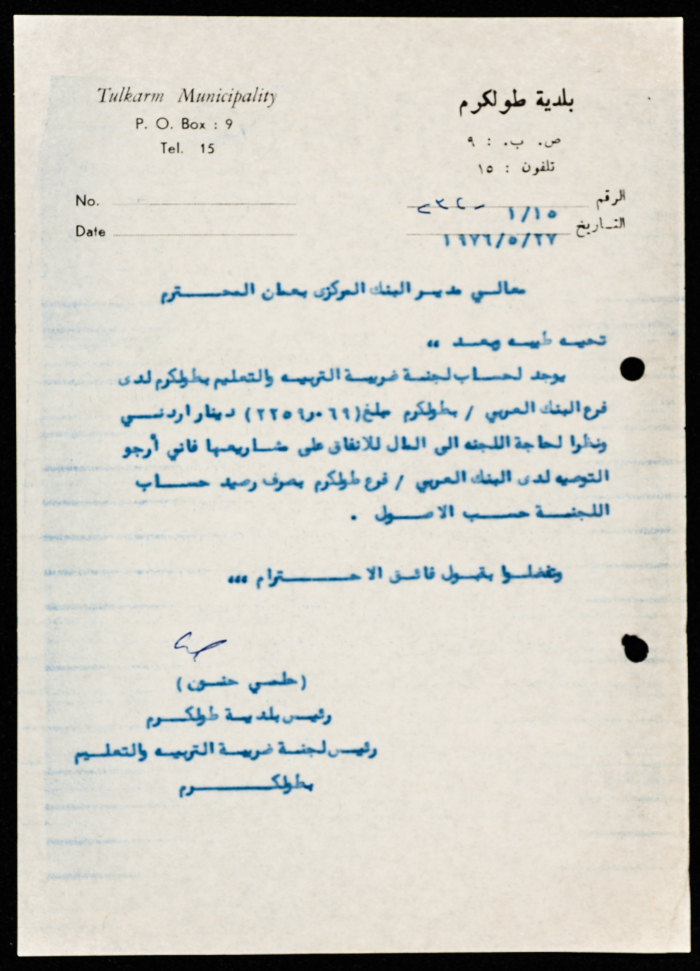 Tulkarm Municipality
P. O. Box : 9
Tel. 15
بلدية طولكرم
ص. ب. : ٩
تلفون : ١٥
No.
Date
الرقم ١/١٥
التاريخ ١٩٧٦/٥/٢٧
معالي مدير البنك المركزى بعمان المحترم
تحيه طيبه وبعد ،،
يوجد لحساب لجنة ضريبة التربيه والتعليم بطولكرم لدى
فرع البنك العربي / بطولكرم مبلغ دينار اردني
ونظرا لحاجة اللجنه الى المال للانفاق على مشاريعها فاني أرجو
التوصيه لدى البنك العربي / فرع طولكرم بصرف رصيد حساب
اللجنة حسب الاصول .
وتفضلوا بقبول فائق الاحترام ،،،
(حلمي حنون)
رئيس بلدية طولكرم
رئيس لجنة ضريبة التربيه والتعليم
بطولكرم